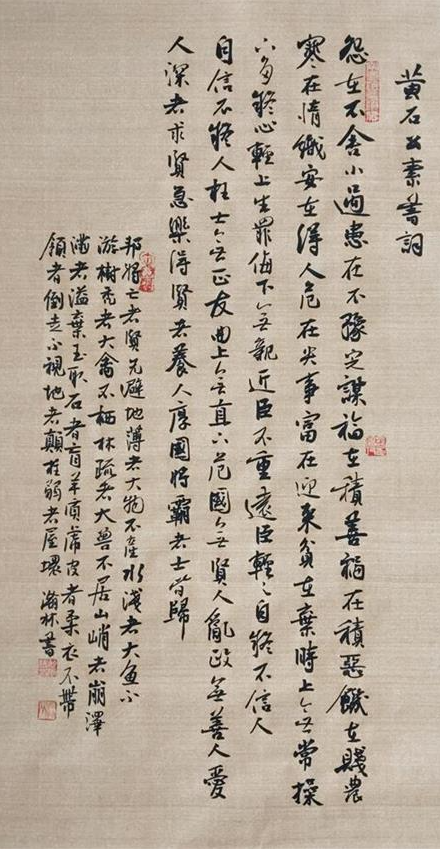 黃石公素書詞
怨在不舍小過患在不豫定謀福在積善禍在積惡饑在賤農
寒在惰織安在得人危在失事富在迎來貧在棄時上无常操
下多疑心輕上生罪侮下无親近臣不重遠臣輕之自疑不信人
自信不疑人枉士无正友曲上无直下危國无賢人亂政無善人愛
人深者求賢急樂得賢者養人厚國將霸者士皆歸
邦將亡者賢先避地薄者大物不產水淺者大魚不
游樹禿者大禽不栖林疏者大獸不居山峭者崩澤
滿者溢棄玉取石者盲羊質虎皮者柔衣不帶
領者倒走不視地者顛柱弱者屋壞 瀚林書